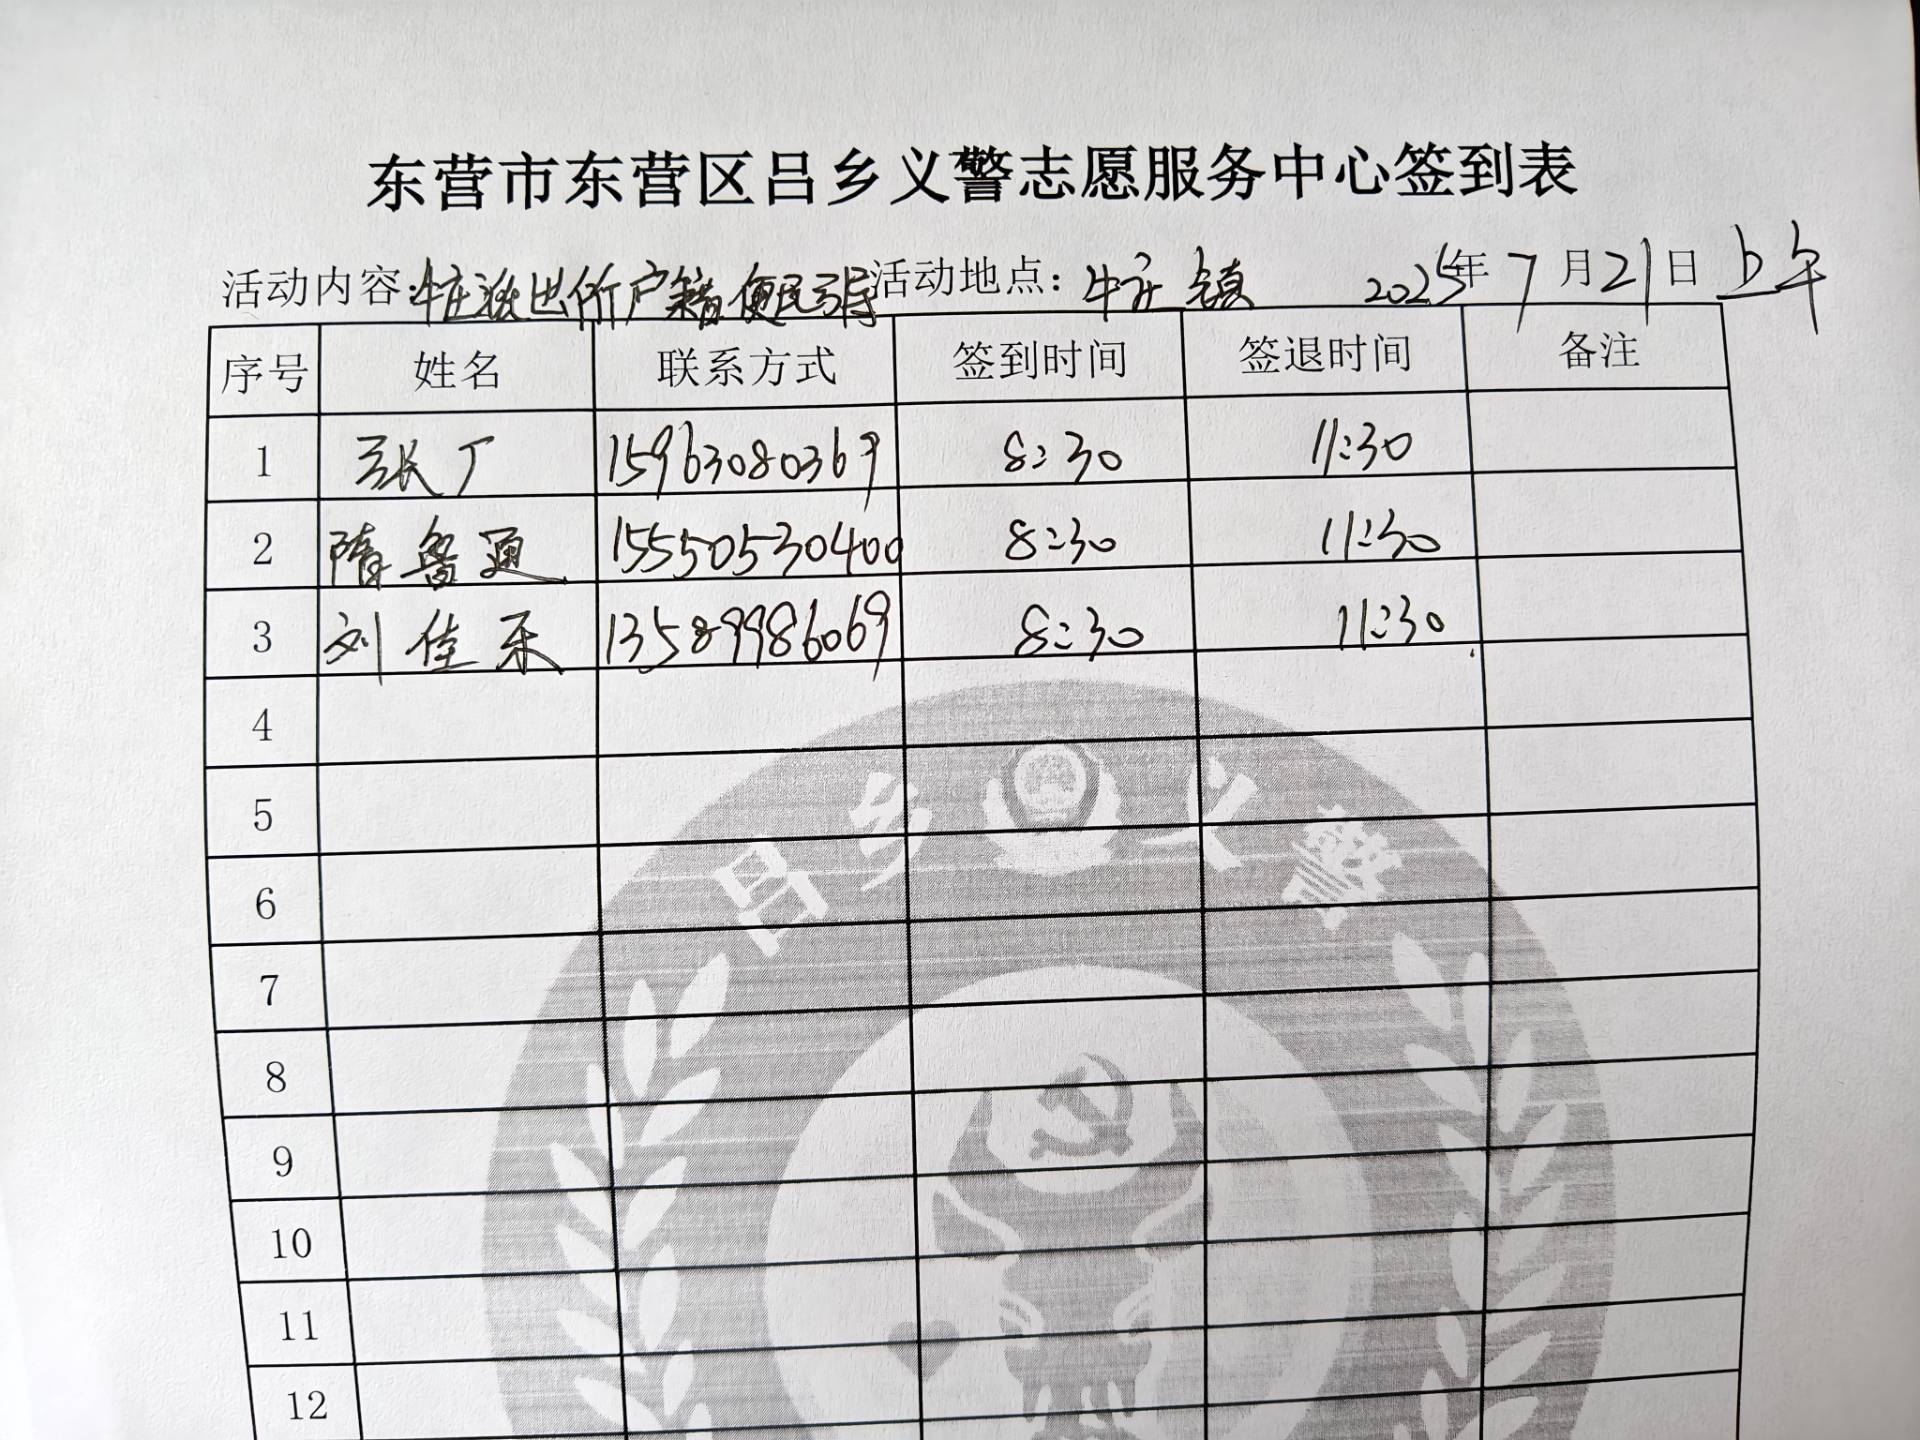 东营市东营区吕乡义警志愿服务中心签到表
活动内容:牛庄派出所户籍便民引导 活动地点:牛庄镇 2025年7月21日上午
序号 姓名 联系方式 签到时间 签退时间 备注
1 张广 15963080369 8:30 11:30
2 隋鲁通 15550530400 8:30 11:30
3 刘佳乐 13589986069 8:30 11:30
4
5
吕乡义警
6
7
8
9
10
11
12